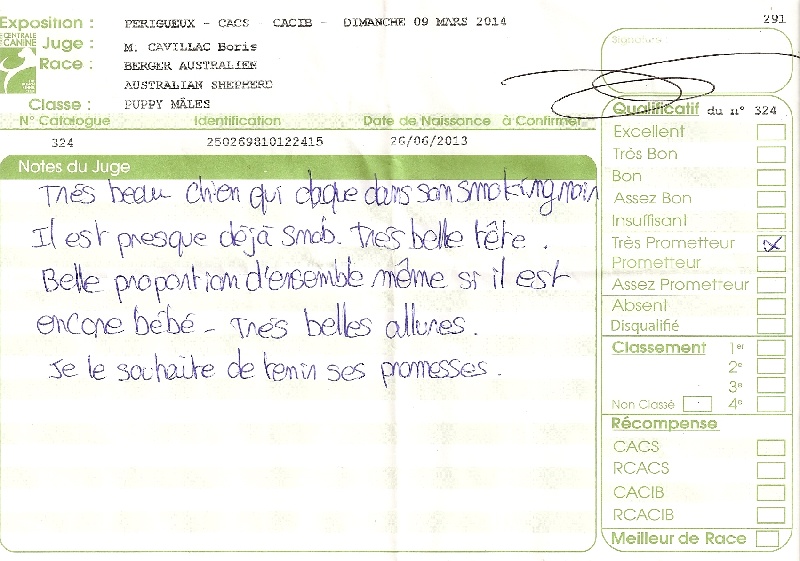 291
Exposition : PERIGUEUX - CACS - CACIB - DIMANCHE 09 MARS 2014
CENTRALE
CANINE
Juge : M. CAVILLAC Boris
Race : BERGER AUSTRALIEN
AUSTRALIAN SHEPHERD
Classe : PUPPY MÂLES
N° Catalogue Identification Date de Naissance à Confirmer
324 250269810122415 26/06/2013
Notes du Juge
Très beau chien qui claque dans son smoking noir
Il est presque déjà snob. Très belle tête.
Belle proportion d'ensemble même si il est
encore bébé - Très belles allures.
Je le souhaite de tenir ses promesses.
Signature
Qualificatif du n° 324
Excellent
Très Bon
Bon
Assez Bon
Insuffisant
Très Prometteur X
Prometteur
Assez Prometteur
Absent
Disqualifié
Classement 1er
2e
3e
Non Classé 4e
Récompense
CACS
RCACS
CACIB
RCACIB
Meilleur de Race